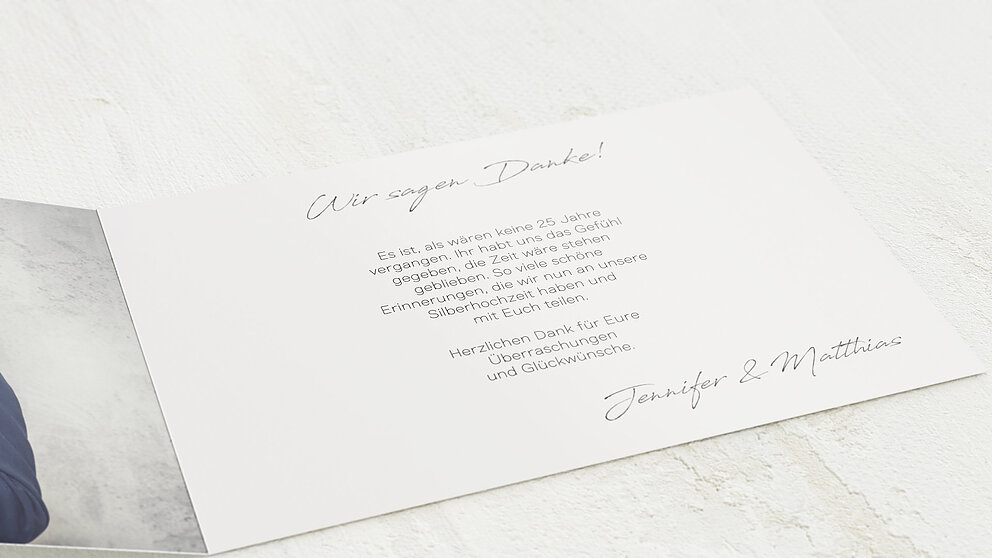 Wir sagen Danke!
Es ist, als wären keine 25 Jahre
vergangen. Ihr habt uns das Gefühl
gegeben, die Zeit wäre stehen
geblieben. So viele schöne
Erinnerungen, die wir nun an unsere
Silberhochzeit haben und
mit Euch teilen.
Herzlichen Dank für Eure
Überraschungen
und Glückwünsche.
Jennifer & Matthias